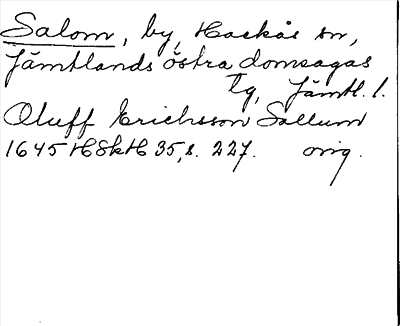 Salom, by, Hackås sn,
Jämtlands östra domsagas
tg, Jämtl. l.
Oluff Erichsson Sallum
1645 HSkH 35, s. 227. orig.